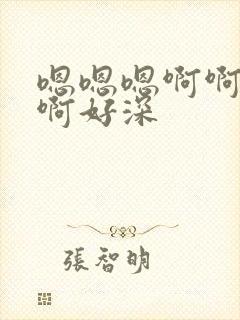 嗯嗯嗯啊啊
啊好深
張智明